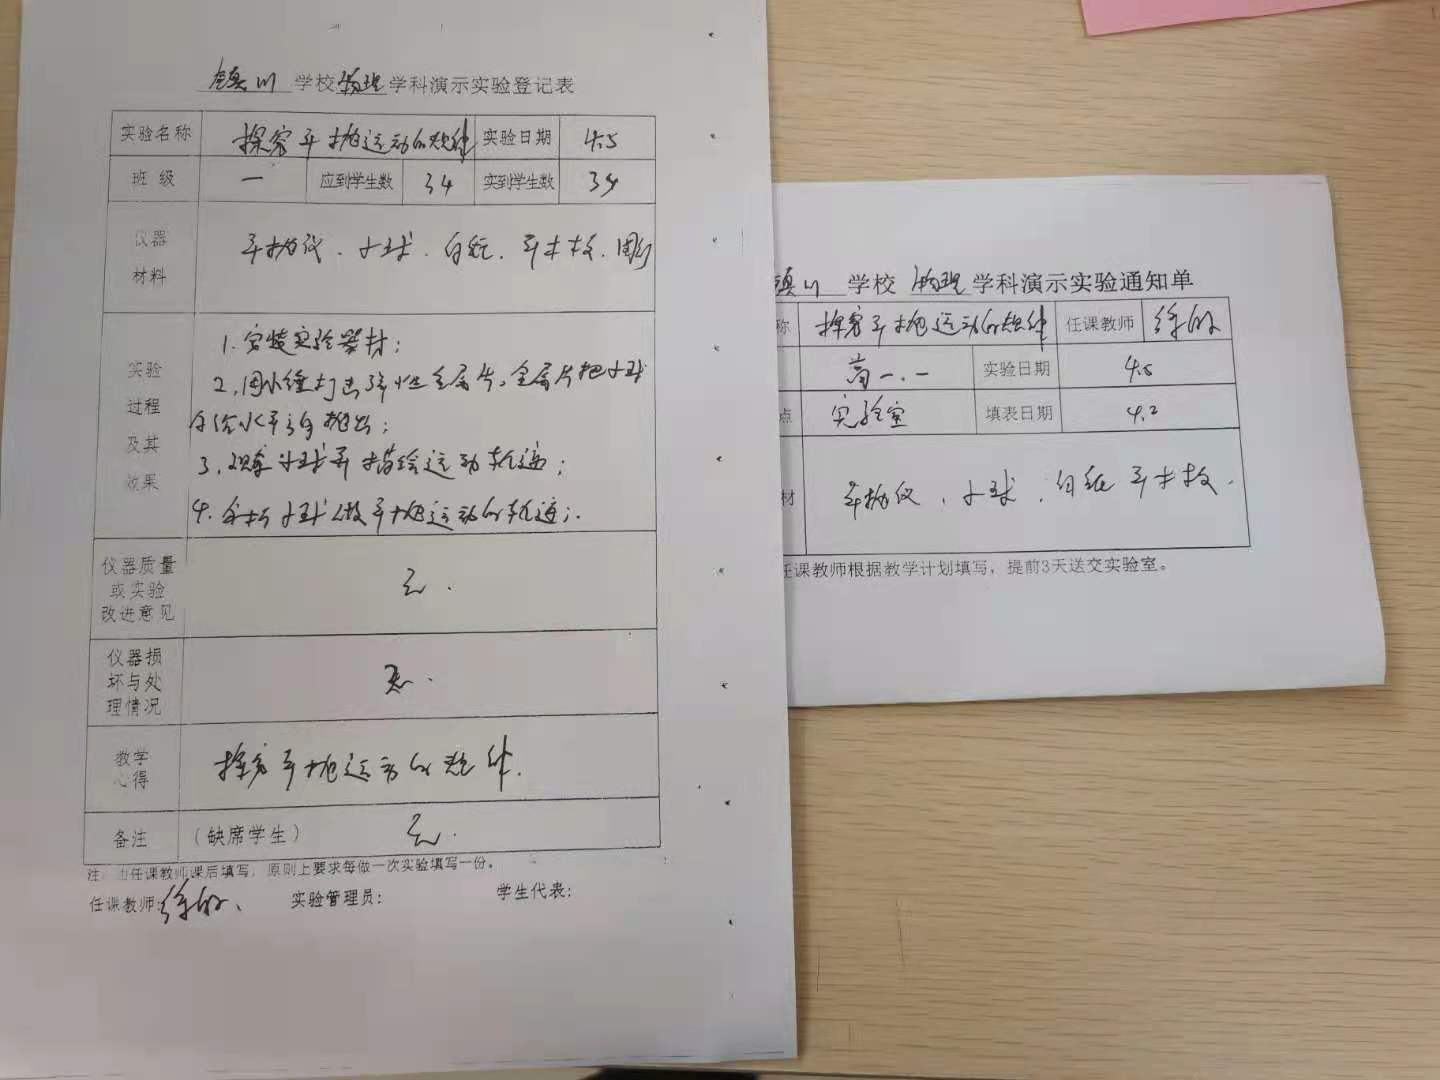 镇川 学校 物理 学科演示实验登记表
实验名称 探究平抛运动的规律 实验日期 4.5
班 级 一 应到学生数 34 实到学生数 34
仪器材料 平抛仪、小球、白纸、平木板、图钉
实验过程及其效果
1.安装实验器材；
2.用小锤打击弹性金属片，金属片把小球
沿水平方向抛出；
3.观察小球并描绘运动轨迹；
4.分析小球做平抛运动的轨迹；
仪器质量或实验改进意见 无.
仪器损坏与处理情况 无.
教学心得 探究平抛运动的规律.
备注 （缺席学生） 无.
注：由任课教师课后填写，原则上要求每做一次实验填写一份。
任课教师： 实验管理员： 学生代表：
镇川 学校 物理 学科演示实验通知单
称 探究平抛运动的规律 任课教师
高一.一 实验日期 4.5
点 实验室 填表日期 4.2
材 平抛仪、小球、白纸 平木板.
任课教师根据教学计划填写，提前3天送交实验室。